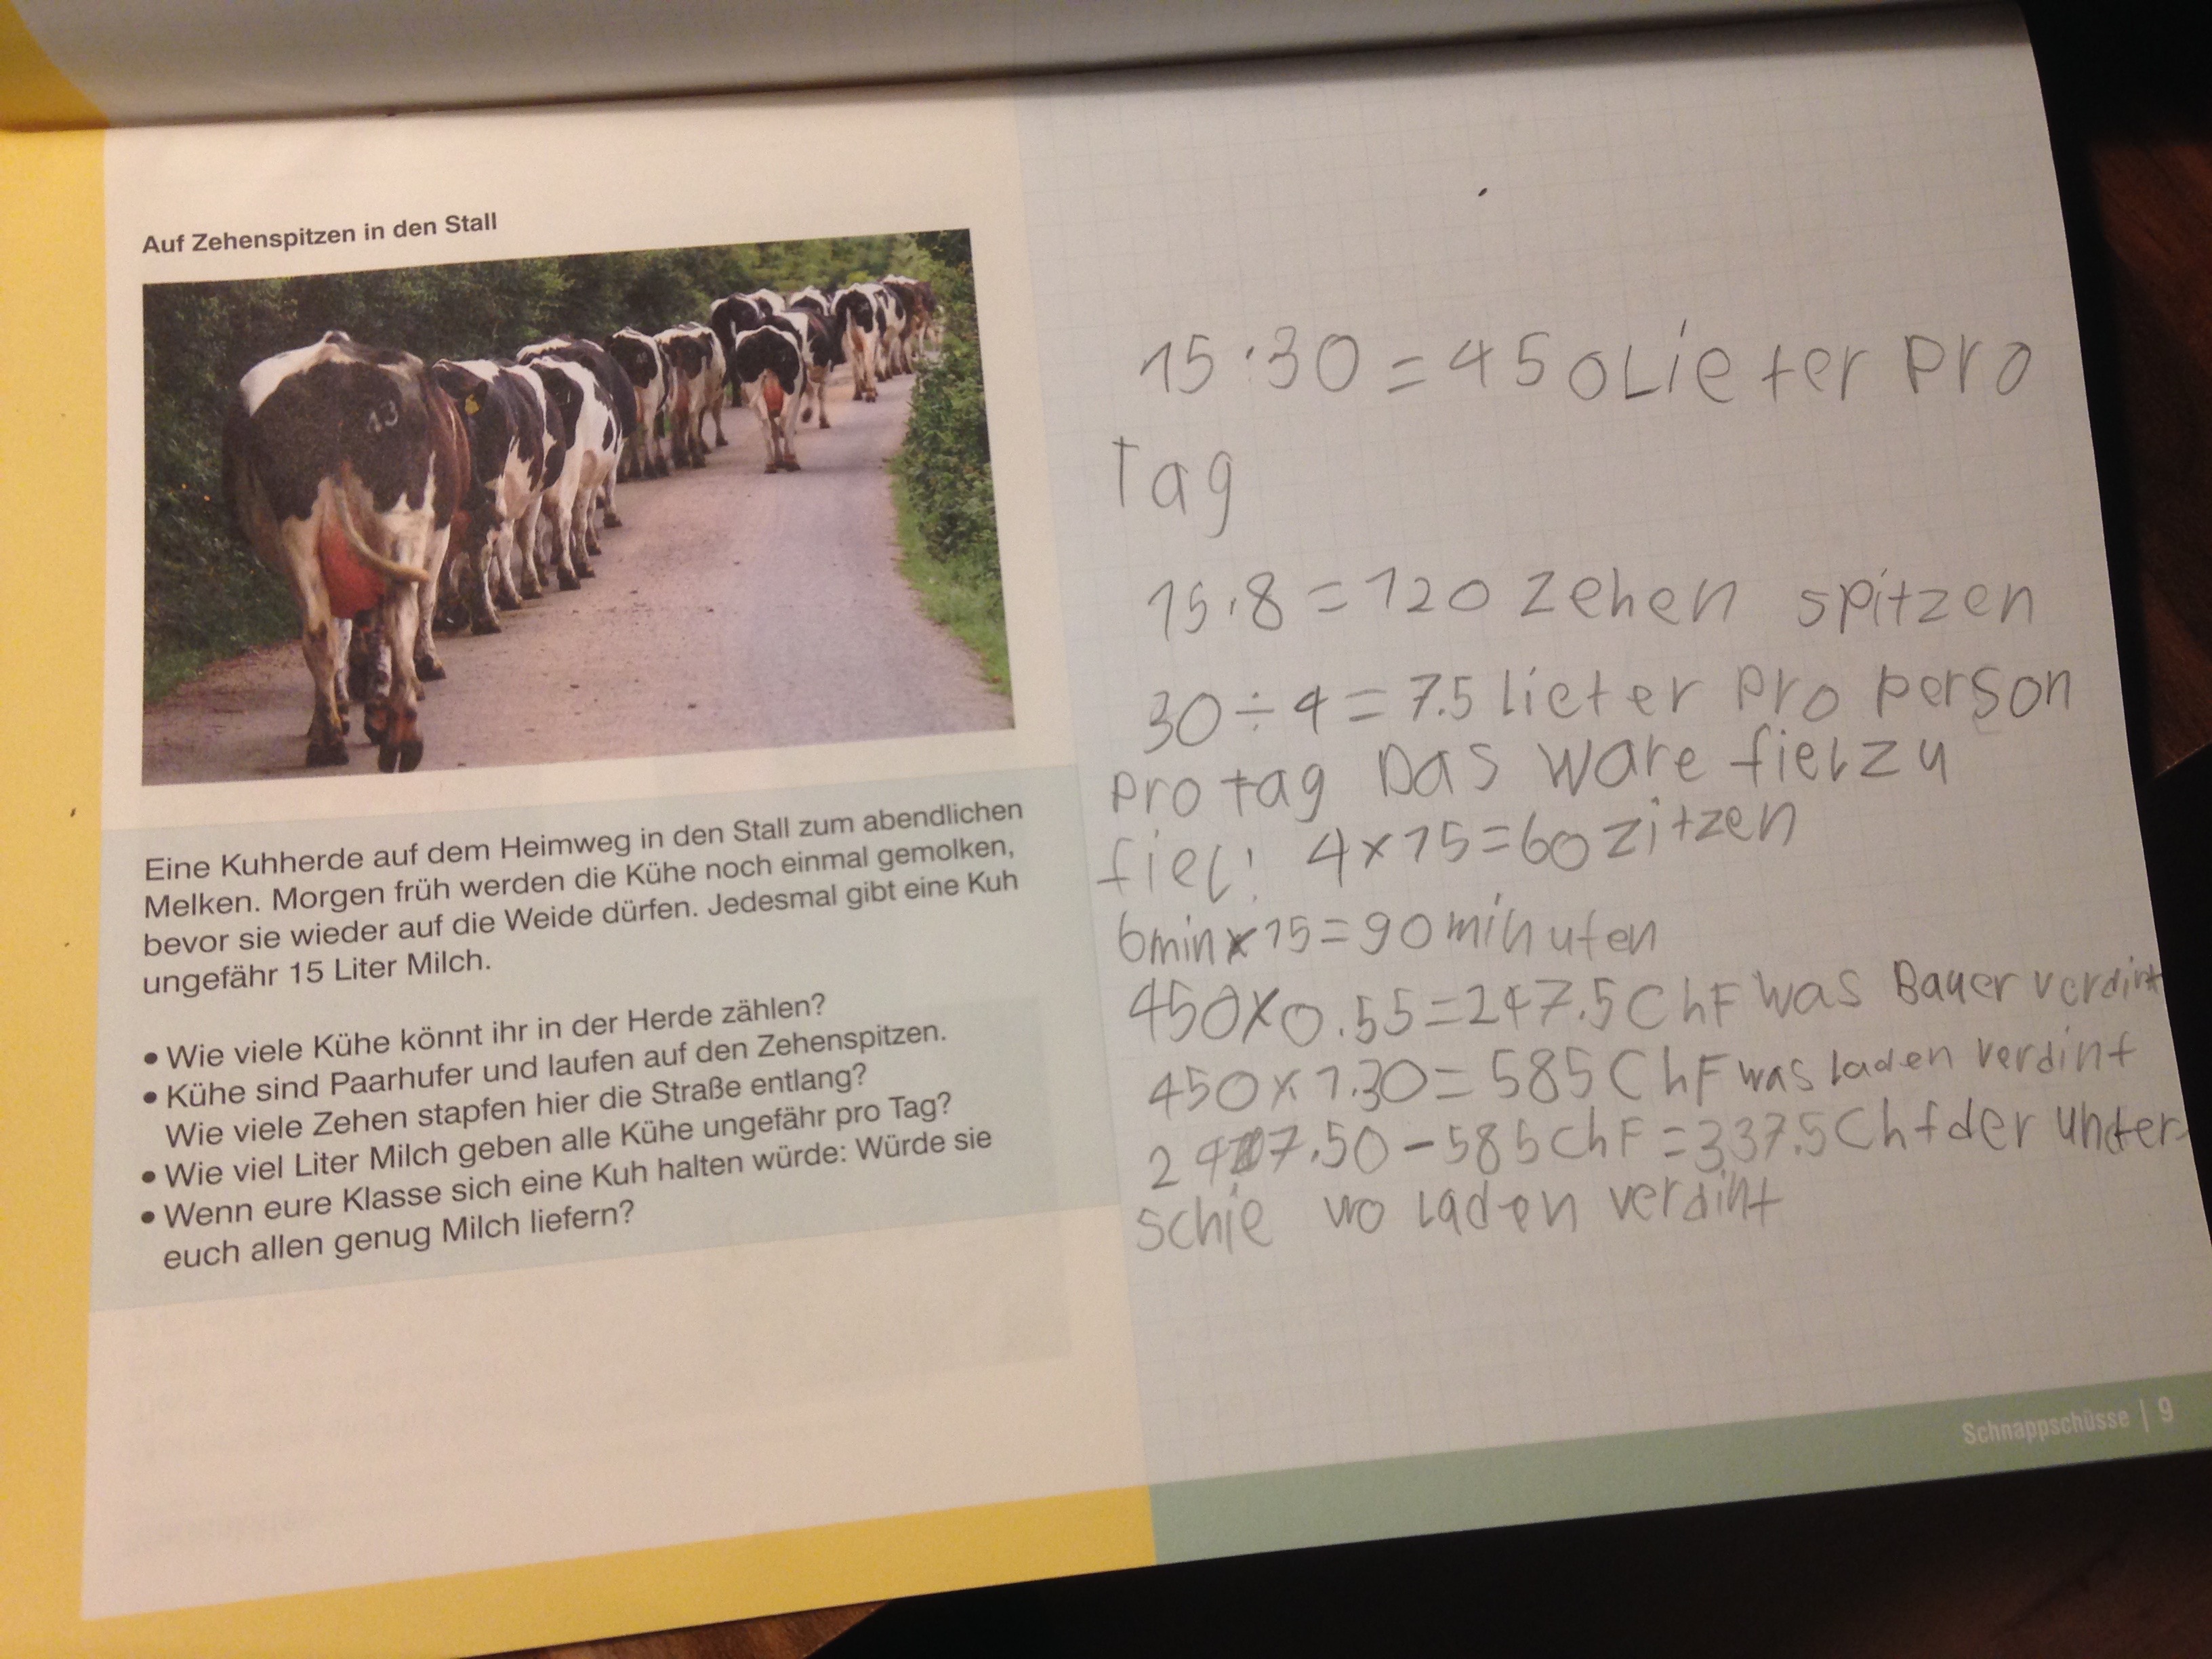 Auf Zehenspitzen in den Stall
13
Eine Kuhherde auf dem Heimweg in den Stall zum abendlichen
Melken. Morgen früh werden die Kühe noch einmal gemolken,
bevor sie wieder auf die Weide dürfen. Jedesmal gibt eine Kuh
ungefähr 15 Liter Milch.
• Wie viele Kühe könnt ihr in der Herde zählen?
• Kühe sind Paarhufer und laufen auf den Zehenspitzen.
Wie viele Zehen stapfen hier die Straße entlang?
• Wie viel Liter Milch geben alle Kühe ungefähr pro Tag?
• Wenn eure Klasse sich eine Kuh halten würde: Würde sie
euch allen genug Milch liefern?
15·30=450Lieter pro
Tag
15·8=120 Zehen spitzen
30÷4=7.5 lieter pro person
pro tag Das ware fielzu
fiel! 4x15=60 zitzen
6minx15=90minuten
450x0.55=247.5ChF was Bauer verdint
450x1.30=585ChF was laden verdint
247.50-585ChF=337.5Chf der unter-
schie wo laden verdint
Schnappschüsse | 9